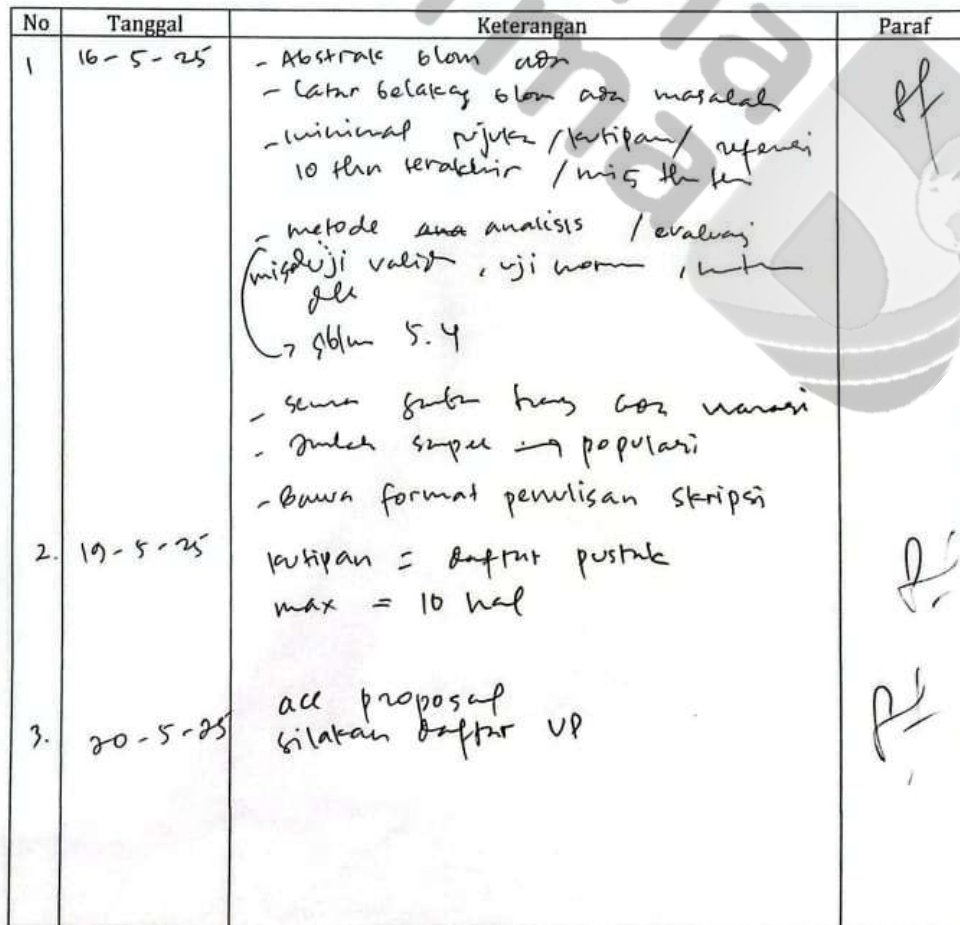 No Tanggal Keterangan Paraf
1 16-5-25 - Abstrak blom ada
- Latar belakag blom ada masalah
- minimal rujukan /kutipan/ referensi
10 thn terakhir /
- metode analisis / evaluasi
misal uji valid , uji norm ,
dll
→ sblm 5.4
- semua ada narasi
- Jumlah → populasi
- Bawa format penulisan skripsi
2. 19-5-25 kutipan = daftar pustak
max = 10 hal
acc proposal
3. 20-5-25 silakan daftar UP